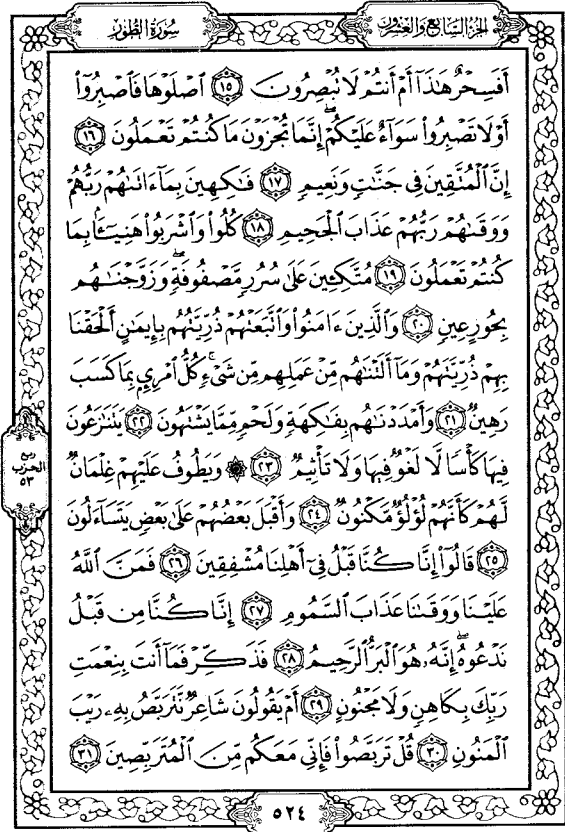 سُورَةُ الطُّورِ
الجزء السابع والعشرون
أَفَسِحْرٌ هَٰذَآ أَمْ أَنتُمْ لَا تُبْصِرُونَ ١٥ ٱصْلَوْهَا فَٱصْبِرُوٓا۟
أَوْ لَا تَصْبِرُوا۟ سَوَآءٌ عَلَيْكُمْ ۖ إِنَّمَا تُجْزَوْنَ مَا كُنتُمْ تَعْمَلُونَ ١٦
إِنَّ ٱلْمُتَّقِينَ فِى جَنَّٰتٍ وَنَعِيمٍ ١٧ فَٰكِهِينَ بِمَآ ءَاتَىٰهُمْ رَبُّهُمْ
وَوَقَىٰهُمْ رَبُّهُمْ عَذَابَ ٱلْجَحِيمِ ١٨ كُلُوا۟ وَٱشْرَبُوا۟ هَنِيٓـًٔۢا بِمَا
كُنتُمْ تَعْمَلُونَ ١٩ مُتَّكِـِٔينَ عَلَىٰ سُرُرٍ مَّصْفُوفَةٍ ۖ وَزَوَّجْنَٰهُم
بِحُورٍ عِينٍ ٢٠ وَٱلَّذِينَ ءَامَنُوا۟ وَٱتَّبَعَتْهُمْ ذُرِّيَّتُهُم بِإِيمَٰنٍ أَلْحَقْنَا
بِهِمْ ذُرِّيَّتَهُمْ وَمَآ أَلَتْنَٰهُم مِّنْ عَمَلِهِم مِّن شَىْءٍ ۚ كُلُّ ٱمْرِئٍۭ بِمَا كَسَبَ
رَهِينٌ ٢١ وَأَمْدَدْنَٰهُم بِفَٰكِهَةٍ وَلَحْمٍ مِّمَّا يَشْتَهُونَ ٢٢ يَتَنَٰزَعُونَ
فِيهَا كَأْسًا لَّا لَغْوٌ فِيهَا وَلَا تَأْثِيمٌ ٢٣ ۞ وَيَطُوفُ عَلَيْهِمْ غِلْمَانٌ
لَّهُمْ كَأَنَّهُمْ لُؤْلُؤٌ مَّكْنُونٌ ٢٤ وَأَقْبَلَ بَعْضُهُمْ عَلَىٰ بَعْضٍ يَتَسَآءَلُونَ
٢٥ قَالُوٓا۟ إِنَّا كُنَّا قَبْلُ فِىٓ أَهْلِنَا مُشْفِقِينَ ٢٦ فَمَنَّ ٱللَّهُ
عَلَيْنَا وَوَقَىٰنَا عَذَابَ ٱلسَّمُومِ ٢٧ إِنَّا كُنَّا مِن قَبْلُ
نَدْعُوهُ ۖ إِنَّهُۥ هُوَ ٱلْبَرُّ ٱلرَّحِيمُ ٢٨ فَذَكِّرْ فَمَآ أَنتَ بِنِعْمَتِ
رَبِّكَ بِكَاهِنٍ وَلَا مَجْنُونٍ ٢٩ أَمْ يَقُولُونَ شَاعِرٌ نَّتَرَبَّصُ بِهِۦ رَيْبَ
ٱلْمَنُونِ ٣٠ قُلْ تَرَبَّصُوا۟ فَإِنِّى مَعَكُم مِّنَ ٱلْمُتَرَبِّصِينَ ٣١
ربع
الحزب
٥٣
٥٢٤